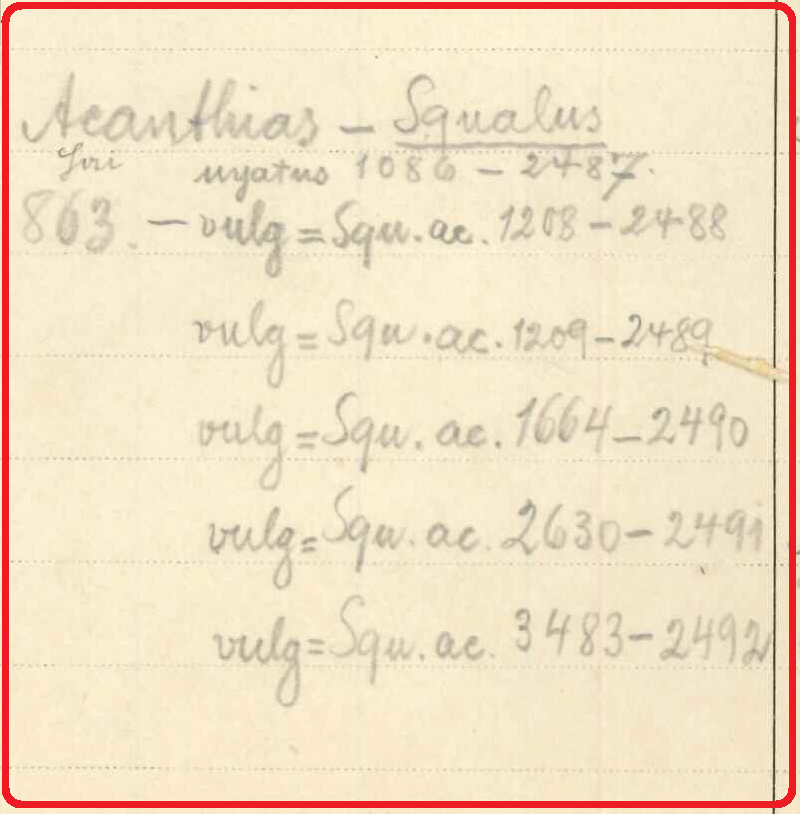 Acanthias - Squalus
uyatus 1086 - 2487.
863. - vulg = Squ. ac. 1208 - 2488
vulg = Squ. ac. 1209 - 2489
vulg = Squ. ac. 1664 - 2490
vulg = Squ. ac. 2630 - 2491
vulg = Squ. ac. 3483 - 2492